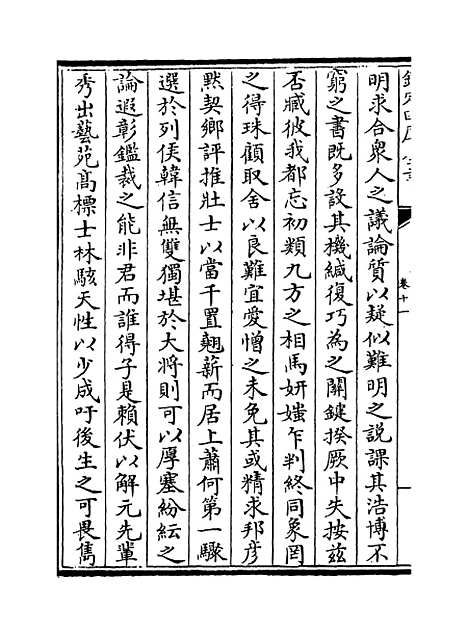 欽定四庫全書
卷十一
明求合衆人之議論質以疑似難明之説課其浩博不
窮之書既多設其機緘復巧為之闗鍵揆厥中失按兹
否臧彼我都忘初類九方之相馬妍媸乍判終同象罔
之得珠顧取舍以良難宜愛憎之未免其或精求邦彦
黙契鄉評推壯士以當千置翹薪而居上蕭何第一驟
選於列侯韓信無雙獨堪於大將則可以厚塞紛紜之
論遐彰鑑裁之能非君而誰得子是賴伏以解元先輩
秀出藝苑髙標士林駭天性以少成吁後生之可畏雋